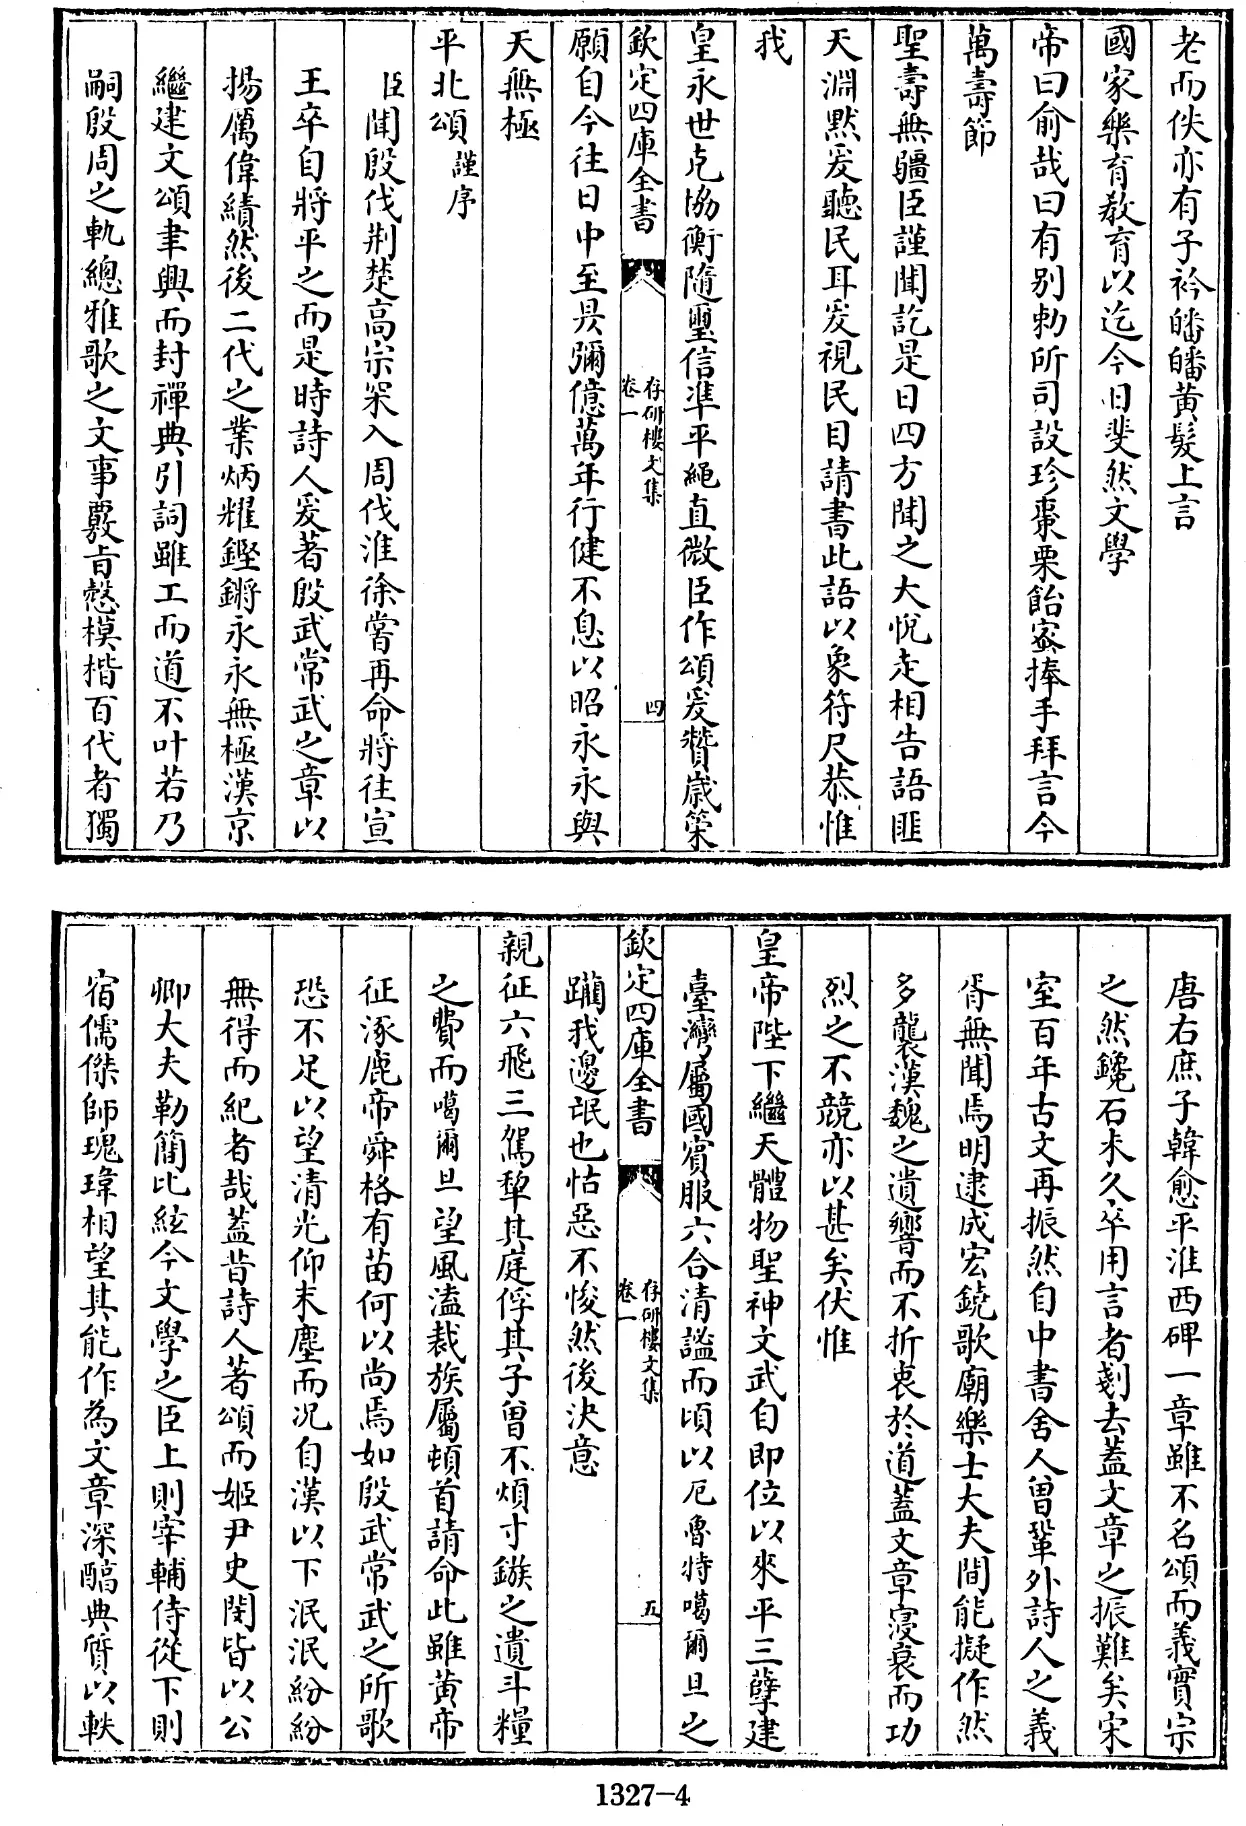 老而佚亦有子衿皤皤黃髮上言
國家樂育教育以迄今日斐然文學
帝曰俞哉曰有別勅所司設珍棗栗飴蜜捧手拜言今
萬壽節
聖壽無疆臣謹聞訖是日四方聞之大悅走相告語匪
天淵默爰聽民耳爰視民目請書此語以象符尺恭惟
我
皇永世克協衡隨璽信準平繩直微臣作頌爰贊嵗策
欽定四庫全書
存研樓文集
卷一
四
願自今往日中至昃彌億萬年行健不息以昭永永與
天無極
平北頌謹序
臣聞殷伐荆楚高宗罙入周伐淮徐嘗再命將往宣
王卒自將平之而是時詩人爰著殷武常武之章以
揚厲偉績然後二代之業炳耀鏗鏘永永無極漢京
繼建文頌聿興而封禪典引詞雖工而道不叶若乃
嗣殷周之軌總雅歌之文事覈旨慤模楷百代者獨
唐右庶子韓愈平淮西碑一章雖不名頌而義實宗
之然鑱石未久卒用言者剗去蓋文章之振難矣宋
室百年古文再振然自中書舍人曾鞏外詩人之義
胥無聞焉明逮成宏鐃歌廟樂士大夫間能擬作然
多襲漢魏之遺響而不折衷於道蓋文章寖衰而功
烈之不競亦以甚矣伏惟
皇帝陛下繼天體物聖神文武自即位以來平三孽建
臺灣屬國賓服六合清謐而頃以厄魯特噶爾旦之
欽定四庫全書
存研樓文集
卷一
五
躪我邊氓也怙惡不悛然後決意
親征六飛三駕犂其庭俘其子曾不煩寸鏃之遺斗糧
之費而噶爾旦望風溘裁族屬頓首請命此雖黄帝
征涿鹿帝舜格有苗何以尚焉如殷武常武之所歌
恐不足以望清光仰末塵而况自漢以下泯泯紛紛
無得而紀者哉蓋昔詩人著頌而姬尹史閔皆以公
卿大夫勒簡比絃今文學之臣上則宰輔侍從下則
宿儒傑師瑰瑋相望其能作為文章深醕典質以軼
1327-4